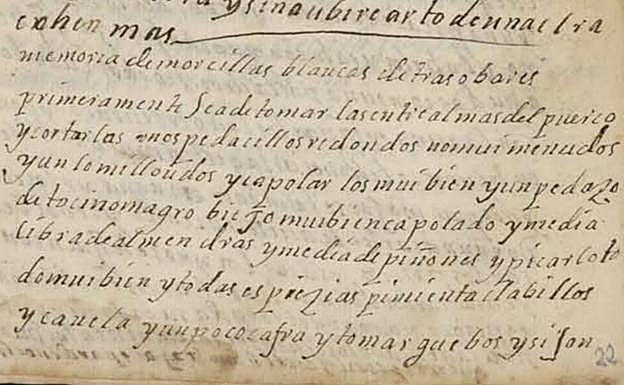 ysinaubirearto deunaelra
echen mas
memoria demorcillas blancas detrasobares
primeramente seadetomar lasentrealmasdel puerco
ycortarlas enospedacillosredondos nomuimenudos
yunlomilloudos ycapolar losmuibien yunpedazo
detocinomagro biejomuibiencapolado ymedia
libradealmendras ymediadepiñones ypicarloto
domuibien ytodasespezias pimientaclabillos
ycanela yunpocozafra ytomarguebos ysison
22